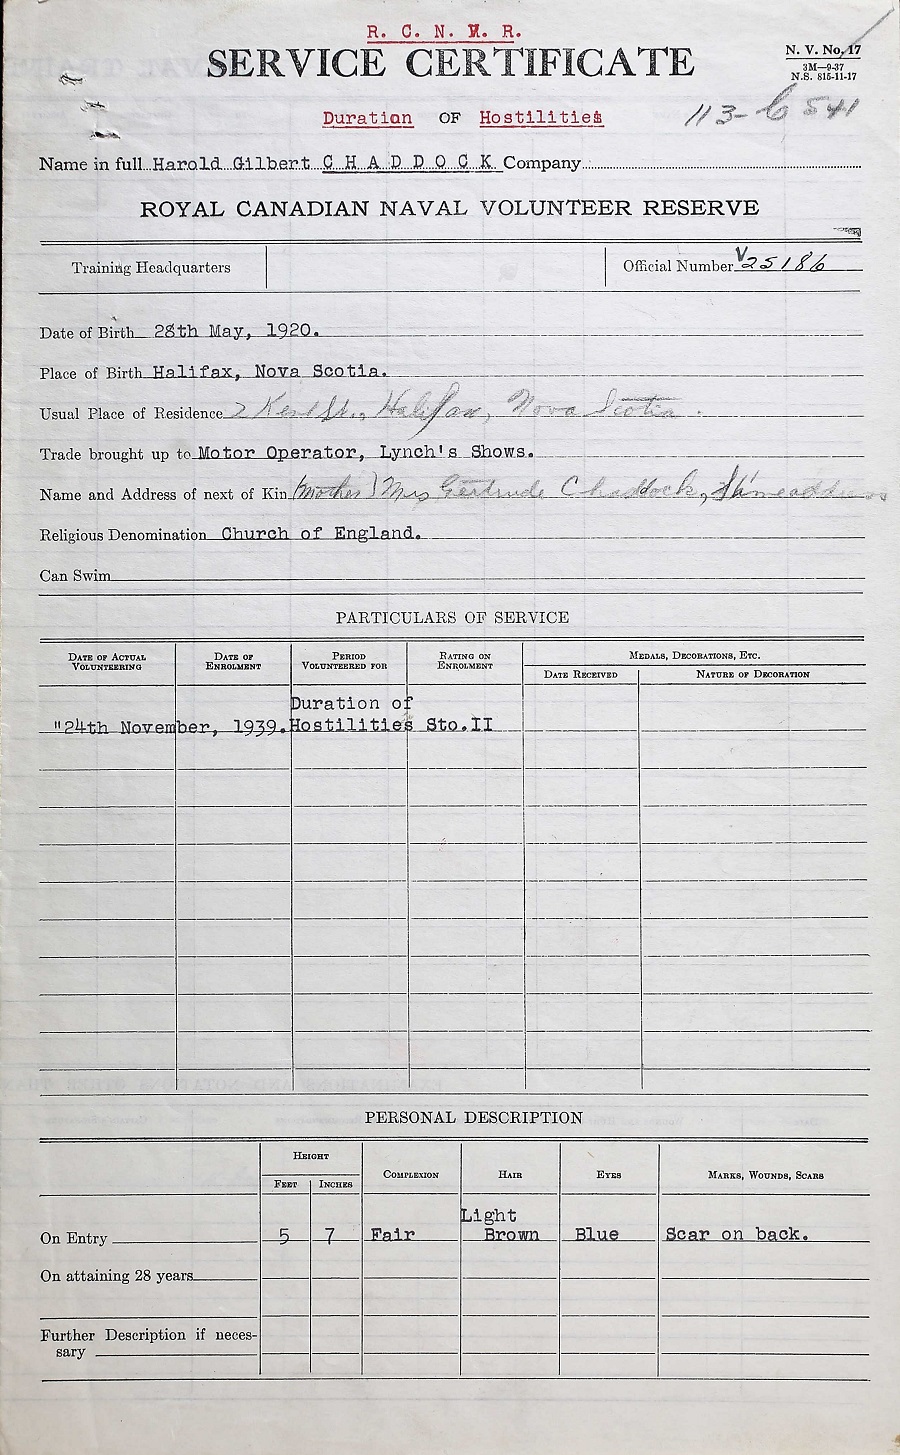 R. C. N. V. R.
SERVICE CERTIFICATE
N. V. No. 17
3M—9-37
N.S. 815-11-17
Duration OF Hostilities
113-C 541
Name in full Harold Gilbert CHADDOCK Company
ROYAL CANADIAN NAVAL VOLUNTEER RESERVE
Training Headquarters
Official Number V25186
Date of Birth 28th May, 1920.
Place of Birth Halifax, Nova Scotia.
Usual Place of Residence 2 Kent St., Halifax, Nova Scotia.
Trade brought up to Motor Operator, Lynch's Shows.
Name and Address of next of Kin (Mother) Mrs Gertrude Chaddock, Same address
Religious Denomination Church of England.
Can Swim
PARTICULARS OF SERVICE
DATE OF ACTUAL VOLUNTEERING
DATE OF ENROLMENT
PERIOD VOLUNTEERED FOR
RATING ON ENROLMENT
MEDALS, DECORATIONS, ETC.
DATE RECEIVED
NATURE OF DECORATION
Duration of
"24th November, 1939. Hostilities Sto.II
PERSONAL DESCRIPTION
HEIGHT
FEET INCHES
COMPLEXION
HAIR
EYES
MARKS, WOUNDS, SCARS
Light
On Entry 5 7 Fair Brown Blue Scar on back.
On attaining 28 years
Further Description if neces-
sary